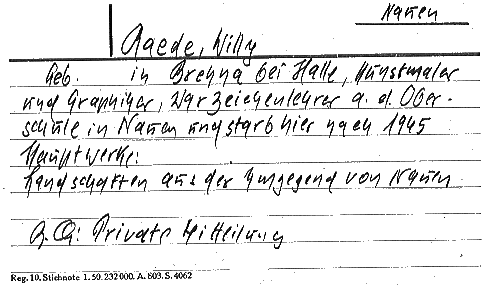 Nauen
Gaede, Willy
Geb. in Brehna bei Halle, Kunstmaler
und Graphiker, War Zeichenlehrer a. d. Ober-
schule in Nauen und starb hier nach 1945
Hauptwerke:
Landschaften aus der Umgegend von Nauen
Q: Private Mitteilung
Reg. 10. Stichnote 1. 50. 232000. A. 803. S. 4062